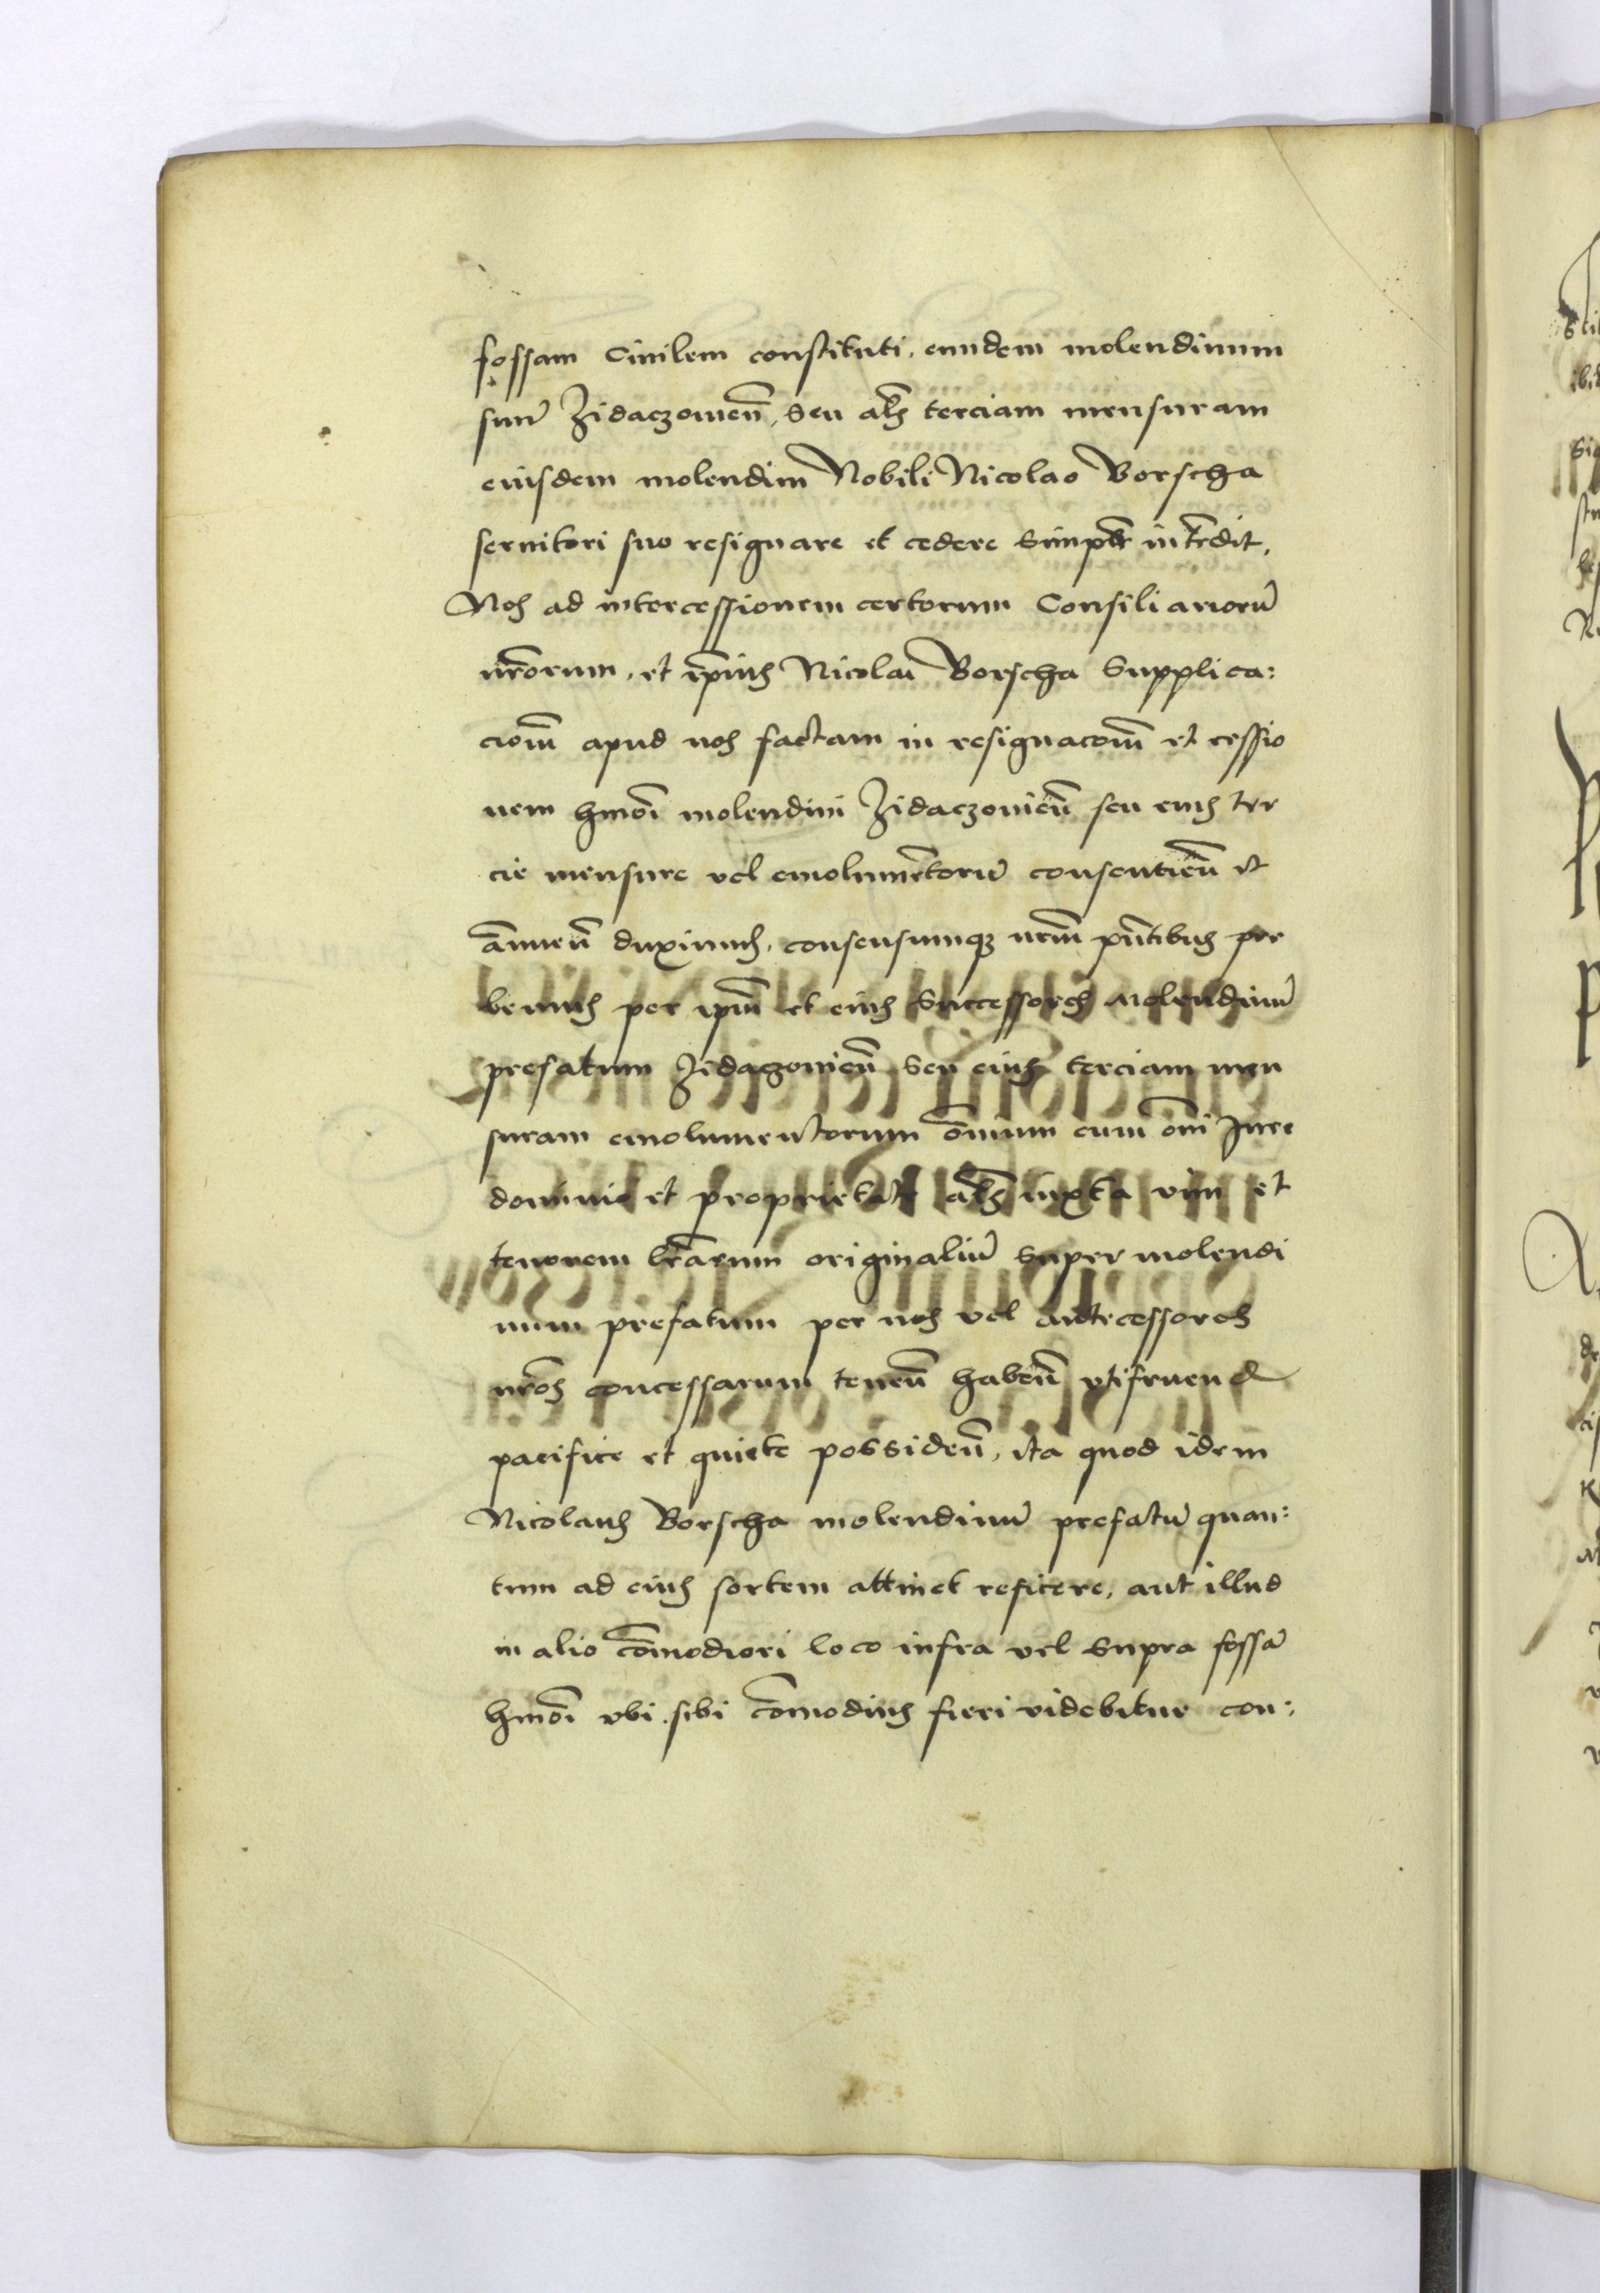 fossam Ciuilem constituti, eundem molendinum
suũ Zidaczouieñ, Seu al̃s terciam mensuram
eiusdem molendini Nobili Nicolao Borscha
seruitori suo resignare et cedere Simpl̃r int̃edit,
Nos ad intercessionem certorum Consiliariorũ
nr̃orum, et ip̃ius Nicolai Borscha Supplica:
ciom̃ apud nos factam in resignacom̃ et cessio
nem hmõi molendini Zidaczouieñ seu eius ter
cie mensure vel emolumẽtorũ consentieñ et
ãnueñ duximus, consensumqz nr̃m pñtibus pre
bemus per ip̃m et eius Successores Molendinũ
prefatum Zidaczouieñ Seu eius terciam men
suram emolumentorum õmnium cum om̃i Jure
dominio et proprietate al̃s iuxta vim et
tenorem lr̃arum originaliũ Super molendi
num prefatum per nos vel Antecessores
nr̃os concessarum teneñ habeñ vtifruend
pacifice et quiete possideñ, ita quod idem
Nicolaus Borscha molendinũ prefatũ quan:
tum ad eius sortem attinet reficere, aut illud
in alio cõmodiori loco infra vel Supra fossã
hmõi vbi sibi cõmodius fieri videbitur con: